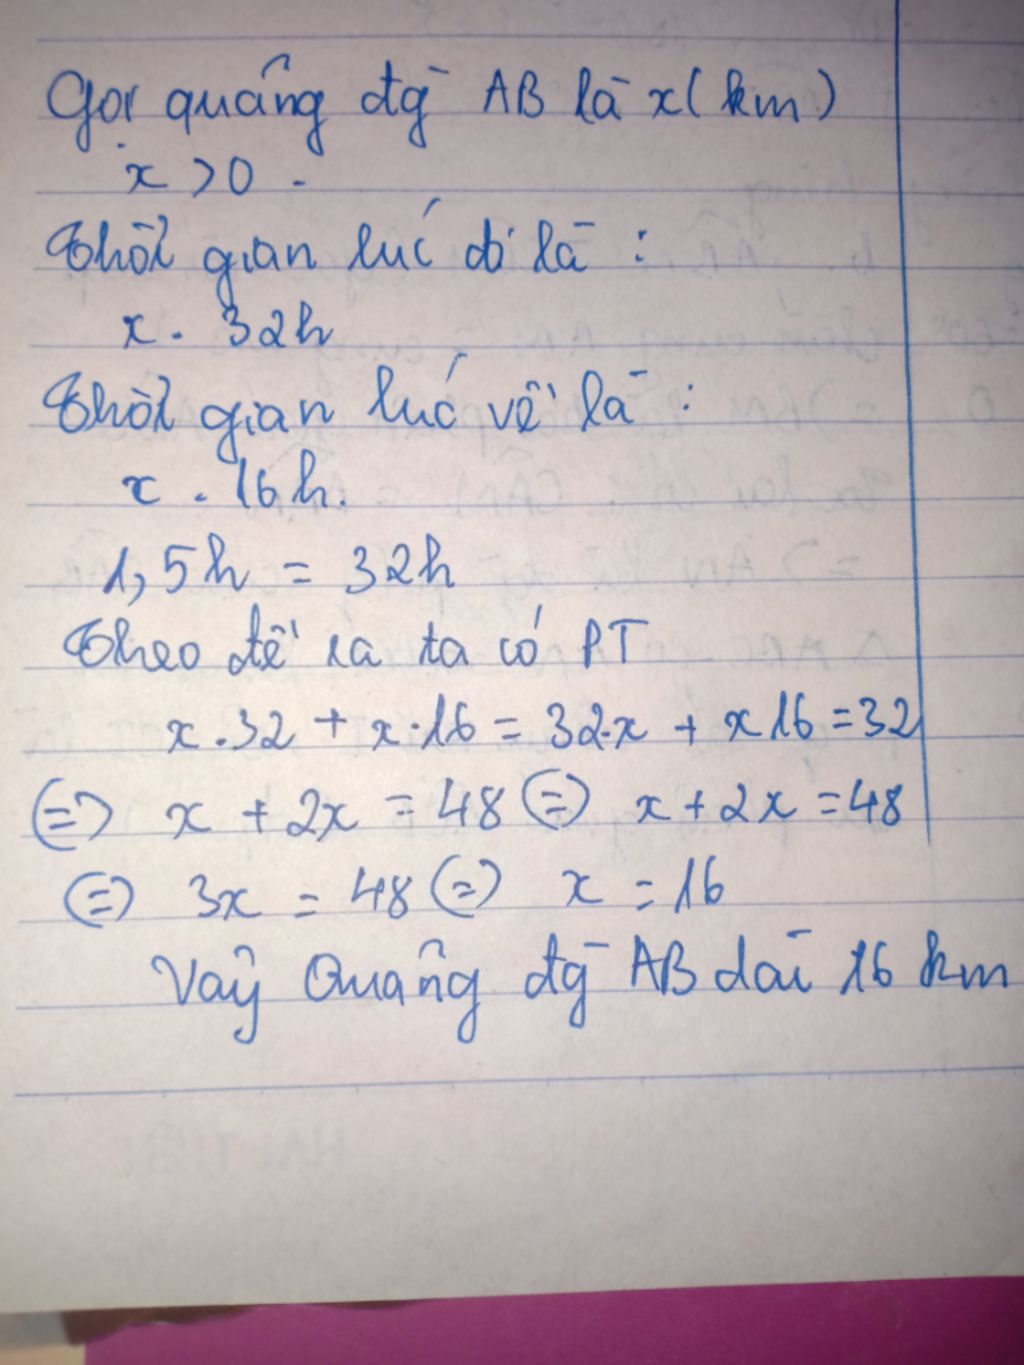 Gọi quãng đg AB là x (km)
x > 0 .
Thời gian lúc đi là :
x . 32h
Thời gian lúc về là :
x . 16h.
1,5h = 32h
Theo đề ra ta có PT
x . 32 + x . 16 = 32.x + x 16 = 32
(=) x + 2x = 48 (=) x + 2x = 48
(=) 3x = 48 (=) x = 16
Vậy Quãng đg AB dài 16 km